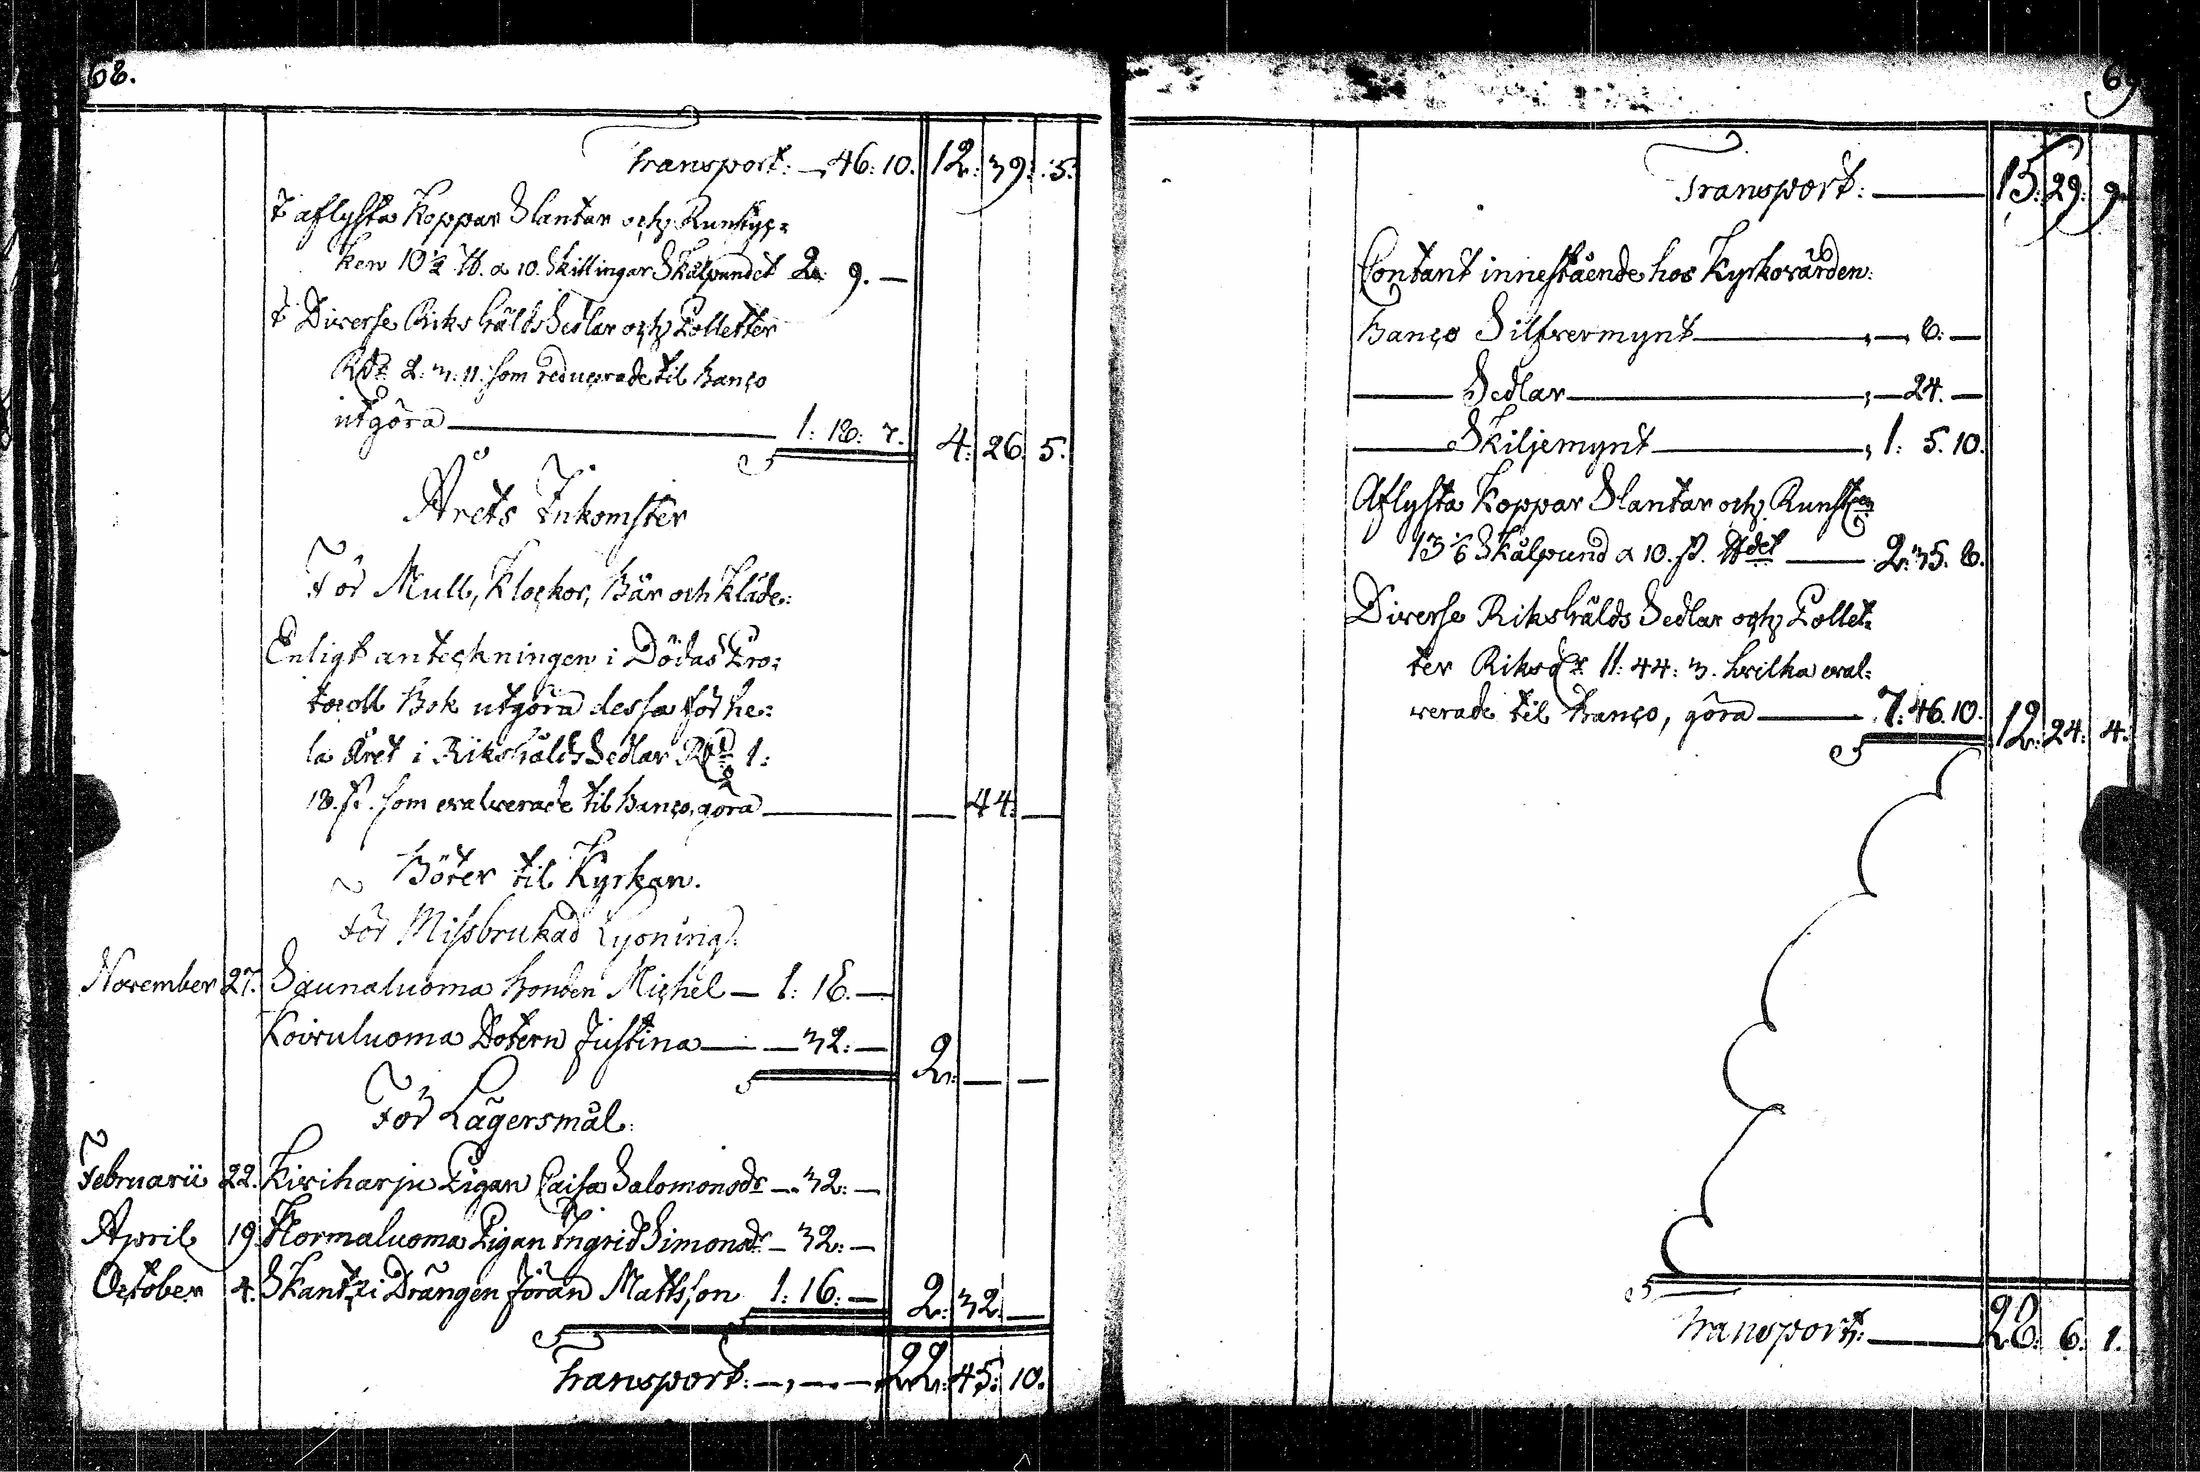 68.
Transport: — 46: 10. 12: 39: 5:
I aflysta Koppar Slantar och Runstyc-
ken 10 1/2 ℔. a 10. Skillingar Skålpundet 2: 9. —
I Diverse Riksgälds Sedlar och Polletter
Rdr 2: 3: 11. som reducerade til Banco
utgöra — 1: 18: 7. 4: 26. 5.
Årets Inkomster
För Mull, Klockor, Bår och Kläde:
Enligt anteckningen i Dödas Pro-
tocoll Bok utgöra dessa för he-
la året i Riksgälds Sedlar Rdr 1:
18. ß. som evalverade til Banco, göra — — 44: —
Böter til Kyrkan.
För Missbrukad
November 27. Saunaluoma Bonden Michel — 1: 16. —
Koivuluoma Dotern Justina — — 32: — 2: — —
För Lägersmål:
Februarii 22. Kiviharju Pigan Caisa Salomonsdr — 32: —
April 19. Kormaluoma Pigan Ingrid Simonsdr — 32: —
October 4. Skantzi Drängen Jöran Mattsson 1: 16: — 2: 32. —
Transport: —, — — 22: 45: 10.
69
Transport: — 15: 29: 9.
Contant innestående hos Kyrkovärden:
Banco Silfvermynt — , — 8: —
— Sedlar — , — 24. —
— Skiljemynt — , 1: 5. 10.
Aflysta Koppar Slantar och Runst
13 1/6 Skålpund a 10. ß. ℔det — 2: 35. 8.
Diverse Riksgälds Sedlar och Pollet-
ter Riksdr 11: 44: 3. hvilka eval-
verade til Banco, göra — 7: 46. 10. 12: 24: 4:
Transport: — 28: 6: 1.